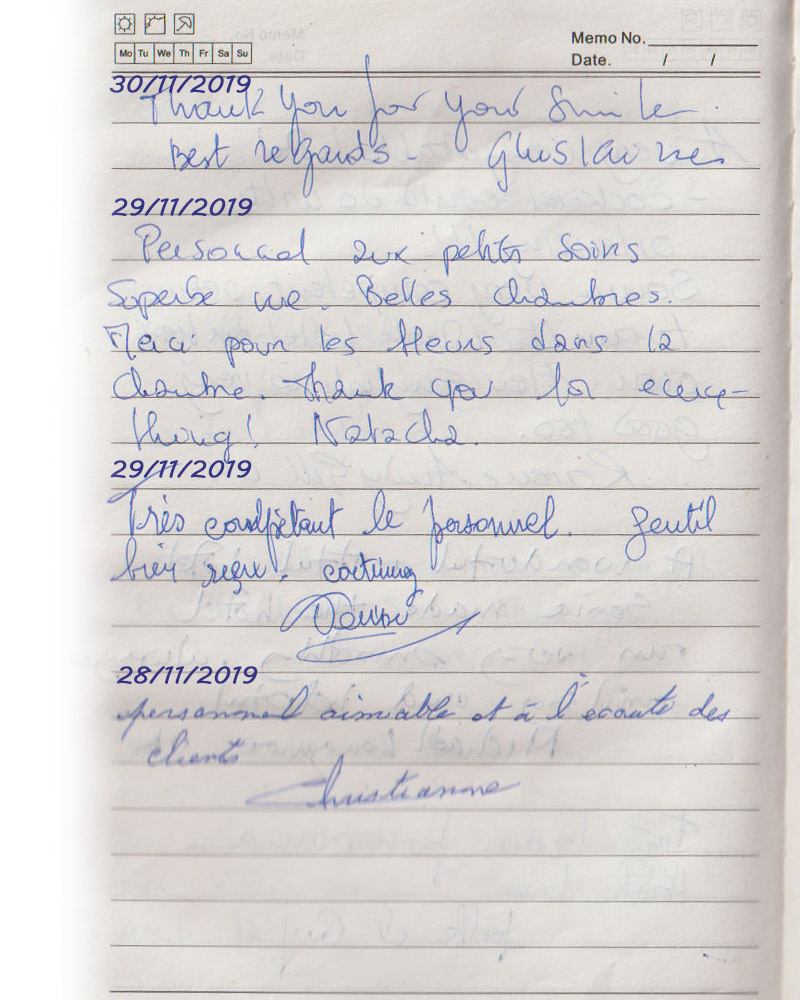 Mo Tu We Th Fr Sa Su
Memo No.
Date. / /
30/11/2019
Thank you for your Smile.
Best regards - Ghislaine
29/11/2019
Personnal aux petits Soins
Superbe vue. Belles chambres.
Merci pour les fleurs dans la
chambre. Thank you for every-
thing! Natacha.
29/11/2019
Très compétant le personnel. Gentil
bien reçu. continuez
28/11/2019
personnel aimable et à l'écoute des
clients
Christianne